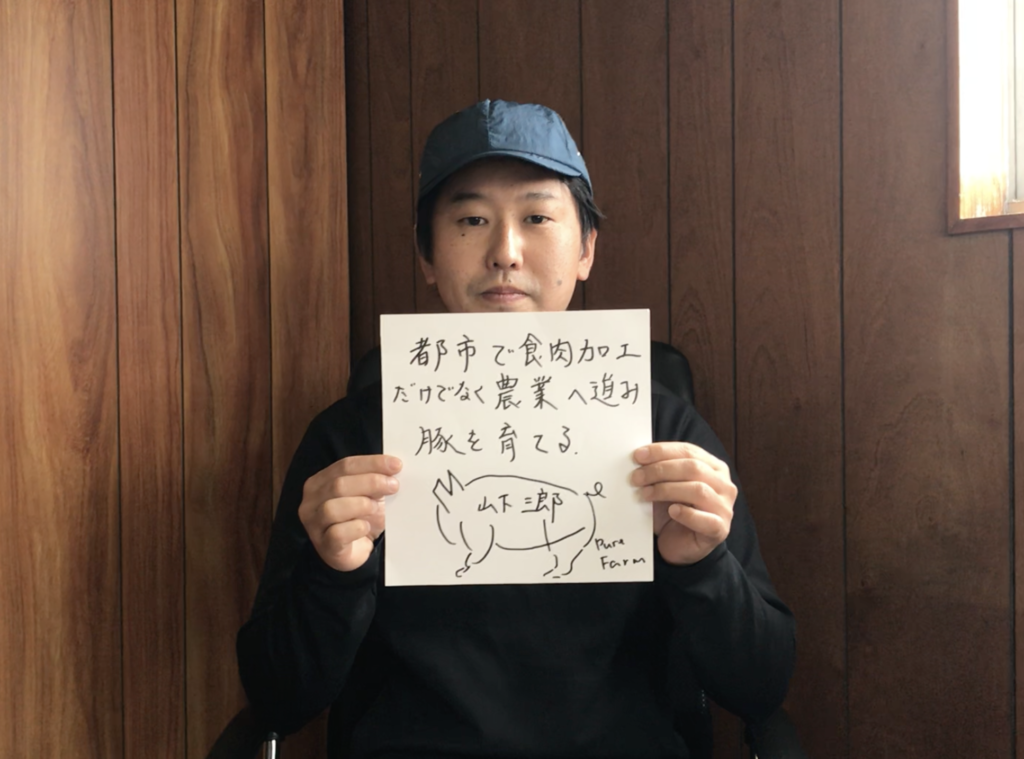 都市で食肉加工
だけでなく農業へ進み
豚を育てる.
山下三郎
Pure
Farm